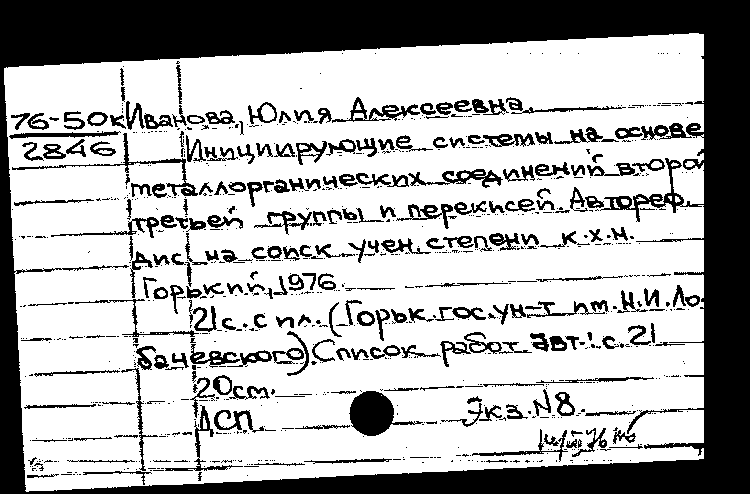 76-50к Иванова, Юлия Алексеевна.
2846 Инициирующие системы на основе
металлорганических соединений второй
третьей группы и перекисей. Автореф.
дис. на соиск. учен. степени к.х.н.
Горький, 1976.
21 с. с ил. (Горьк. гос. ун-т им. Н.И. Ло-
бачевского). Список работ авт.: с. 21
20 см.
ДСП. Экз. N8.